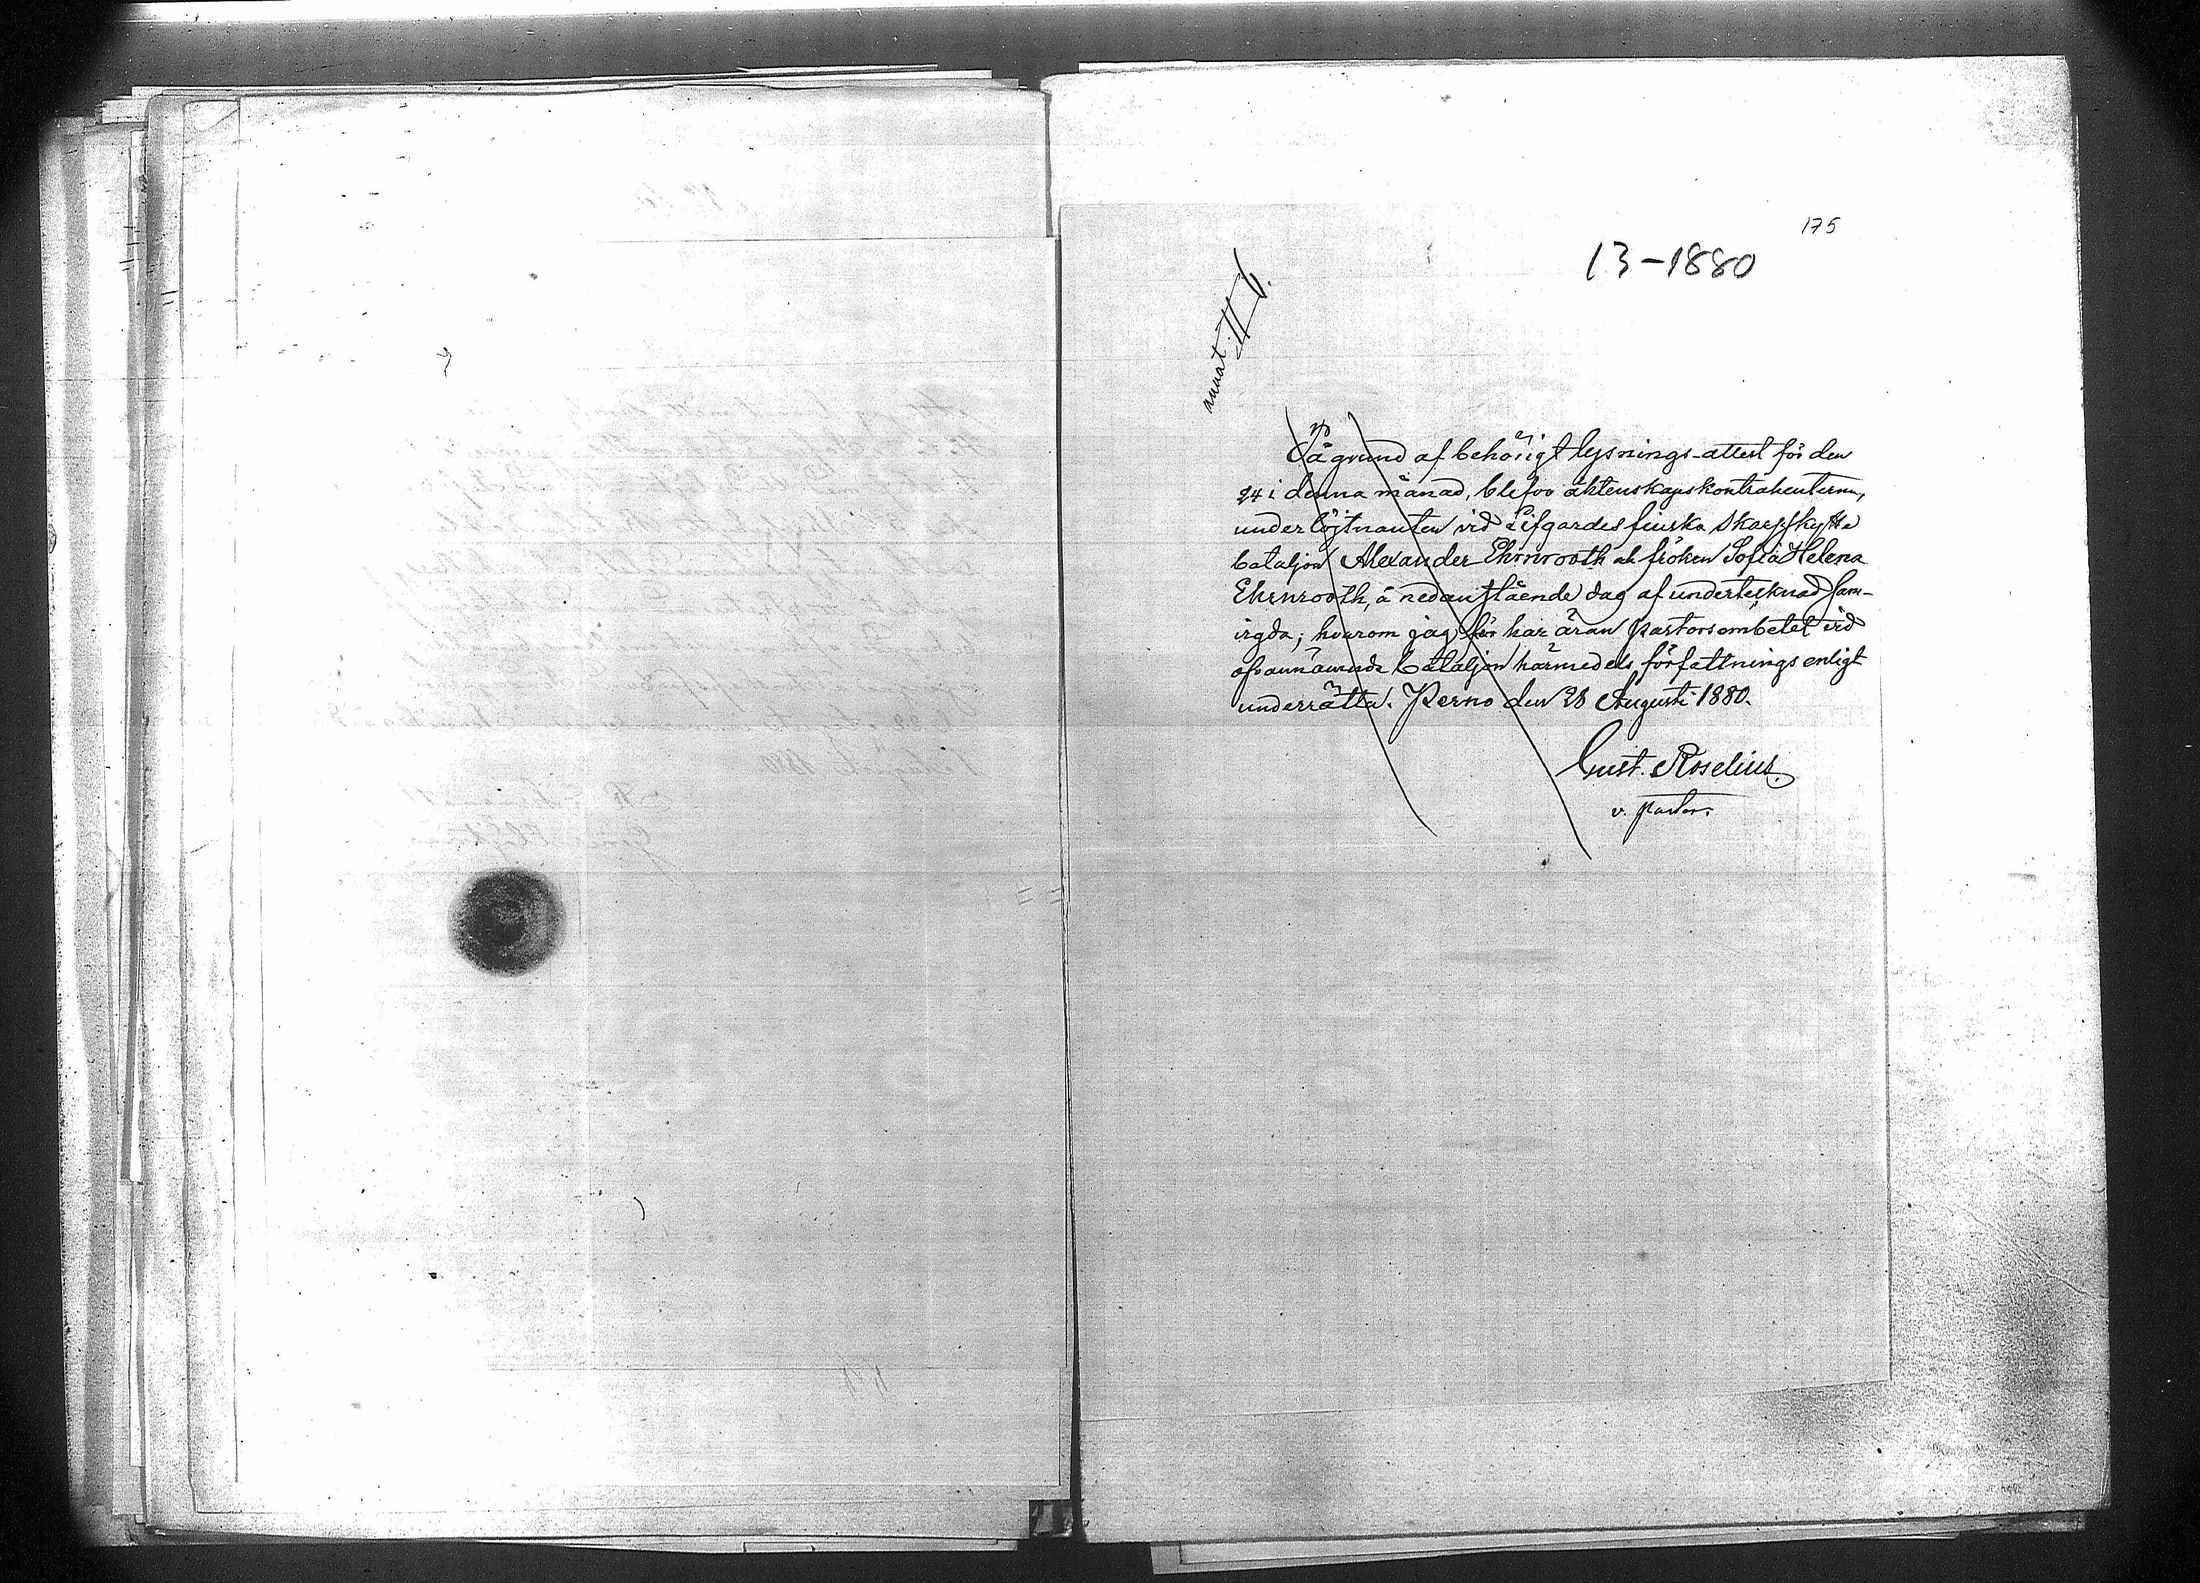 175
13-1880
På grund af behörigt lysnings-attest för den
24 i denna månad, blefvo äktenskapskontrahenterna,
underlöjtnanten vid Lifgardes finska Skarpskytte
bataljon Alexander Ehrnrooth och fröken Sofia Helena
Ehrnrooth, å nedanstående dag af undertecknad sam-
vigda; hvarom jag har äran pastorsembetet vid
ofvannämnda bataljon härmedels författningsenligt
underrätta. Perno den 28 Augusti 1880.
Gust. Roselius.
v. pastor.